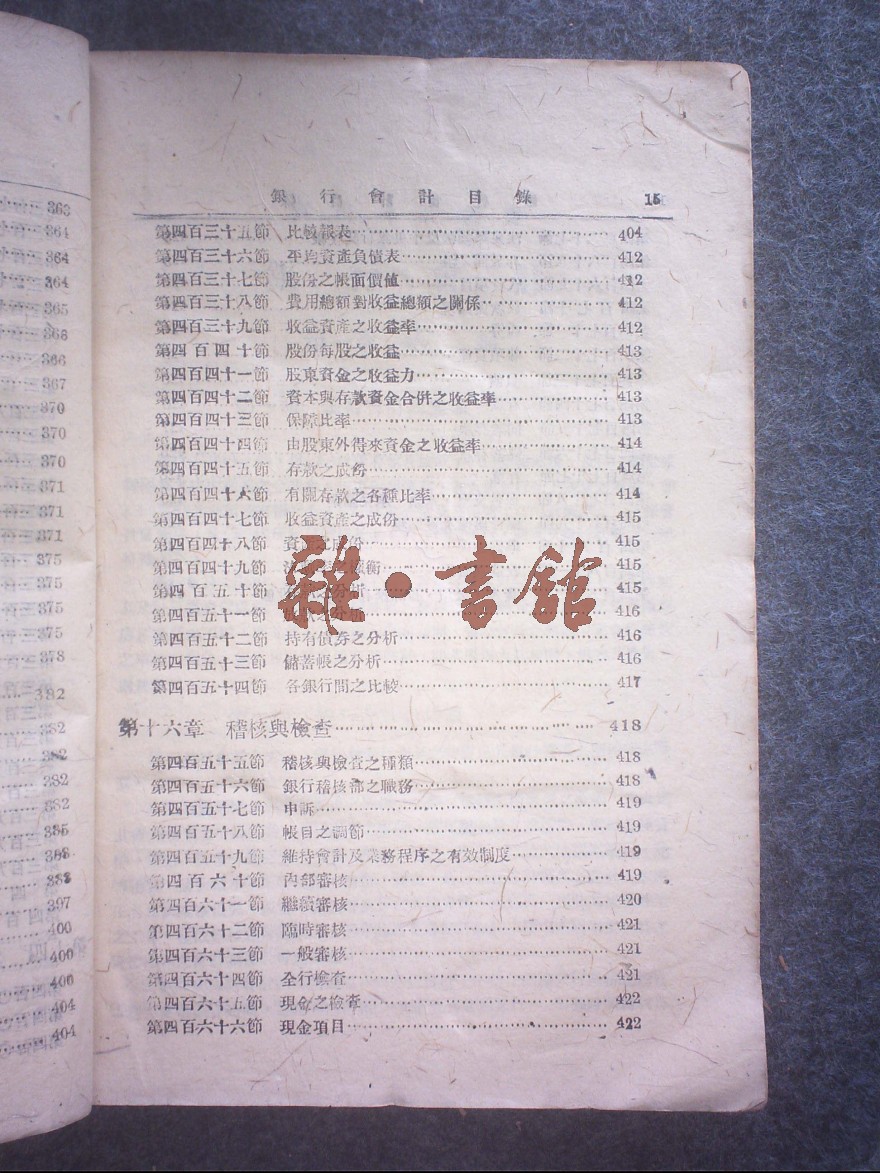 銀行會計目錄 15
第四百三十五節 比較報表 404
第四百三十六節 平均資產負債表 412
第四百三十七節 股份之帳面價値 412
第四百三十八節 費用總額對收益總額之關係 412
第四百三十九節 收益資產之收益率 412
第四百四十節 股份每股之收益 413
第四百四十一節 股東資金之收益力 413
第四百四十二節 資本與存款資金合併之收益率 413
第四百四十三節 保障比率 413
第四百四十四節 由股東外得來資金之收益率 414
第四百四十五節 存款之成份 414
第四百四十六節 有關存款之各種比率 414
第四百四十七節 收益資產之成份 415
第四百四十八節 資 之成份 415
第四百四十九節 衡 415
第四百五十節 分析 415
第四百五十一節 分析 416
第四百五十二節 持有債券之分析 416
第四百五十三節 儲蓄帳之分析 416
第四百五十四節 各銀行間之比較 417
第十六章 稽核與檢查 418
第四百五十五節 稽核與檢查之種類 418
第四百五十六節 銀行稽核部之職務 418
第四百五十七節 申訴 419
第四百五十八節 帳目之調節 419
第四百五十九節 維持會計及業務程序之有效制度 419
第四百六十節 內部審核 419
第四百六十一節 繼續審核 420
第四百六十二節 臨時審核 421
第四百六十三節 一般審核 421
第四百六十四節 全行檢查 421
第四百六十五節 現金之檢查 422
第四百六十六節 現金項目 422
雜·書館
363
364
364
364
365
366
366
367
370
370
370
371
371
371
375
375
375
375
378
382
382
382
382
382
385
388
388
397
400
400
400
404
404